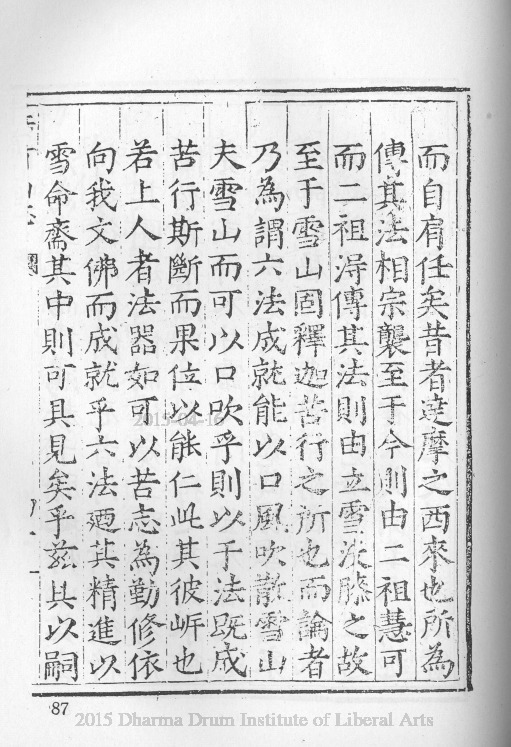 而自肩任矣昔者達摩之西來也所為
傳其法相宗襲至于今則由二祖慧可
而二祖淂傳其法則由立雪沒膝之故
至于雪山固釋迦苦行之所也而論者
乃為謂六法成就能以口風吹散雪山
夫雪山而可以口吹乎則以于法既成
苦行斯斷而果位以能仁此其彼岸也
若上人者法器如可以苦志為勤修依
向我文佛而成就乎六法廼其精進以
雪命齋其中則可具見矣乎茲具以嗣
87
2015-04-16
2015 Dharma Drum Institute of Liberal Arts